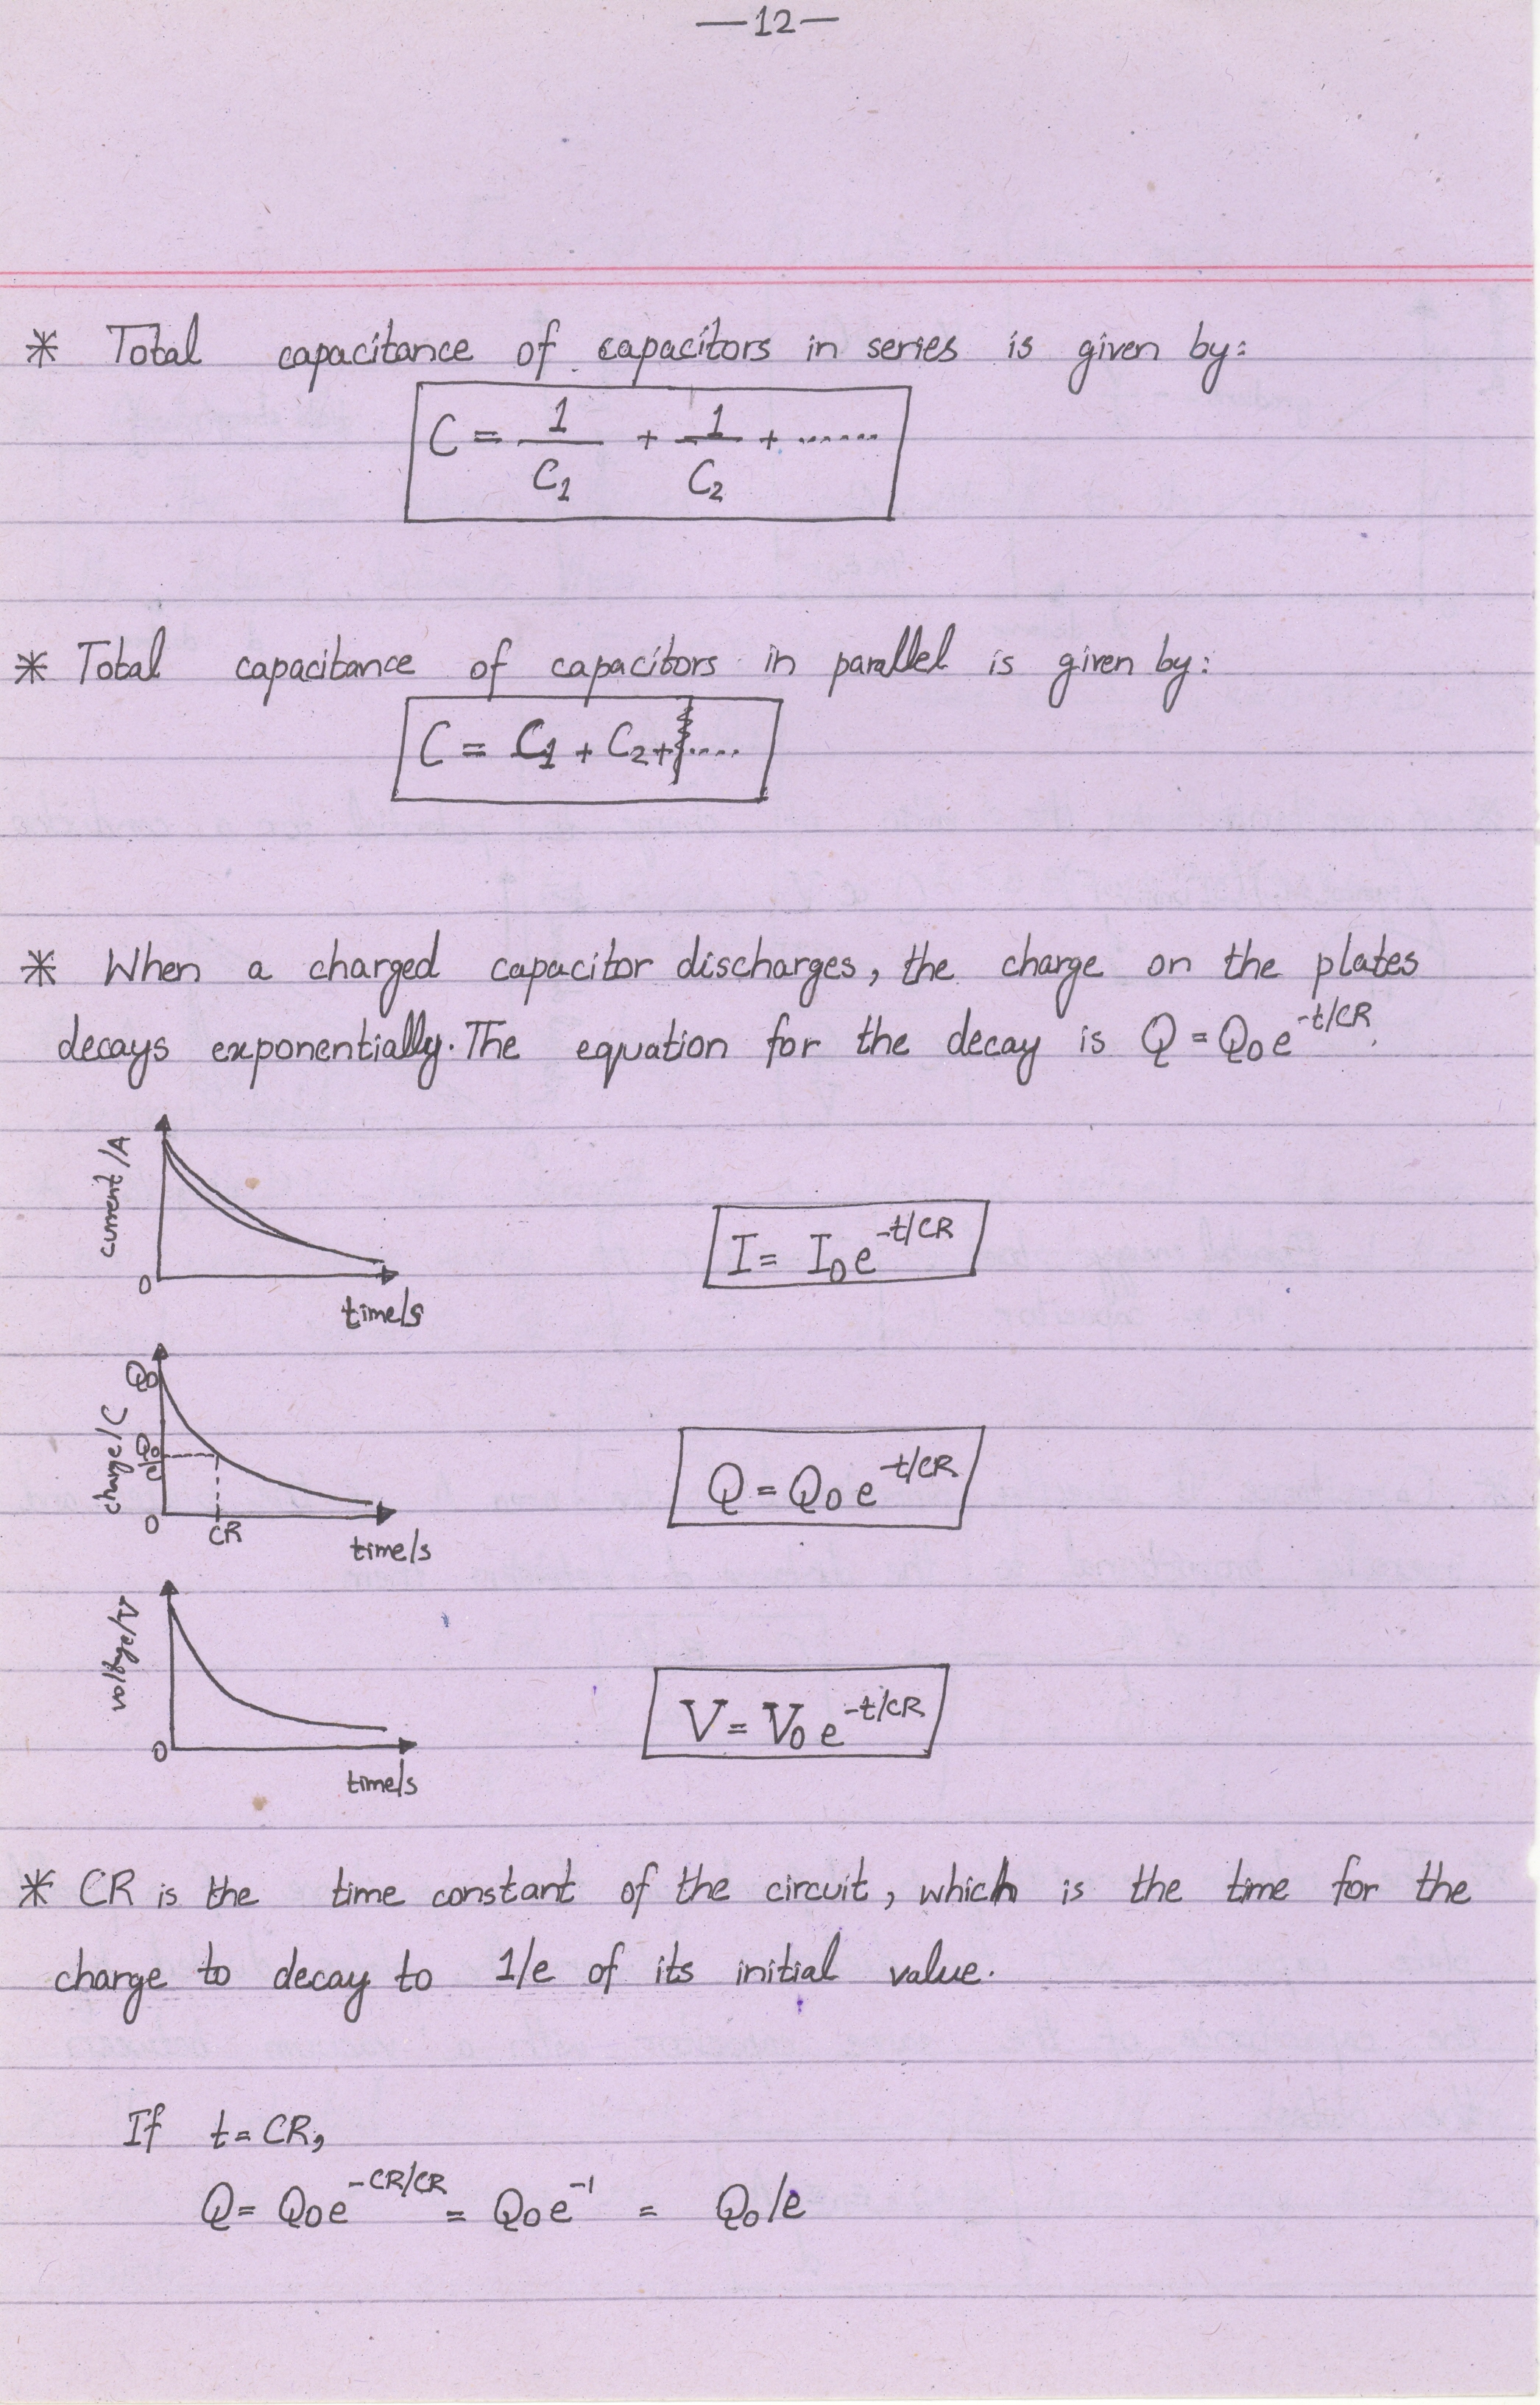 —12—
* Total capacitance of capacitors in series is given by:
C = 1/C₁ + 1/C₂ + ......
* Total capacitance of capacitors in parallel is given by:
C = C₁ + C₂ + ....
* When a charged capacitor discharges, the charge on the plates
decays exponentially. The equation for the decay is Q = Q₀e^-t/CR.
current /A
0
time/s
I = I₀e^-t/CR
Q₀
charge/C
Q₀/e
0
CR
time/s
Q = Q₀e^-t/CR
voltage/V
0
time/s
V = V₀e^-t/CR
* CR is the time constant of the circuit, which is the time for the
charge to decay to 1/e of its initial value.
If t = CR,
Q = Q₀e^-CR/CR = Q₀e^-1 = Q₀/e